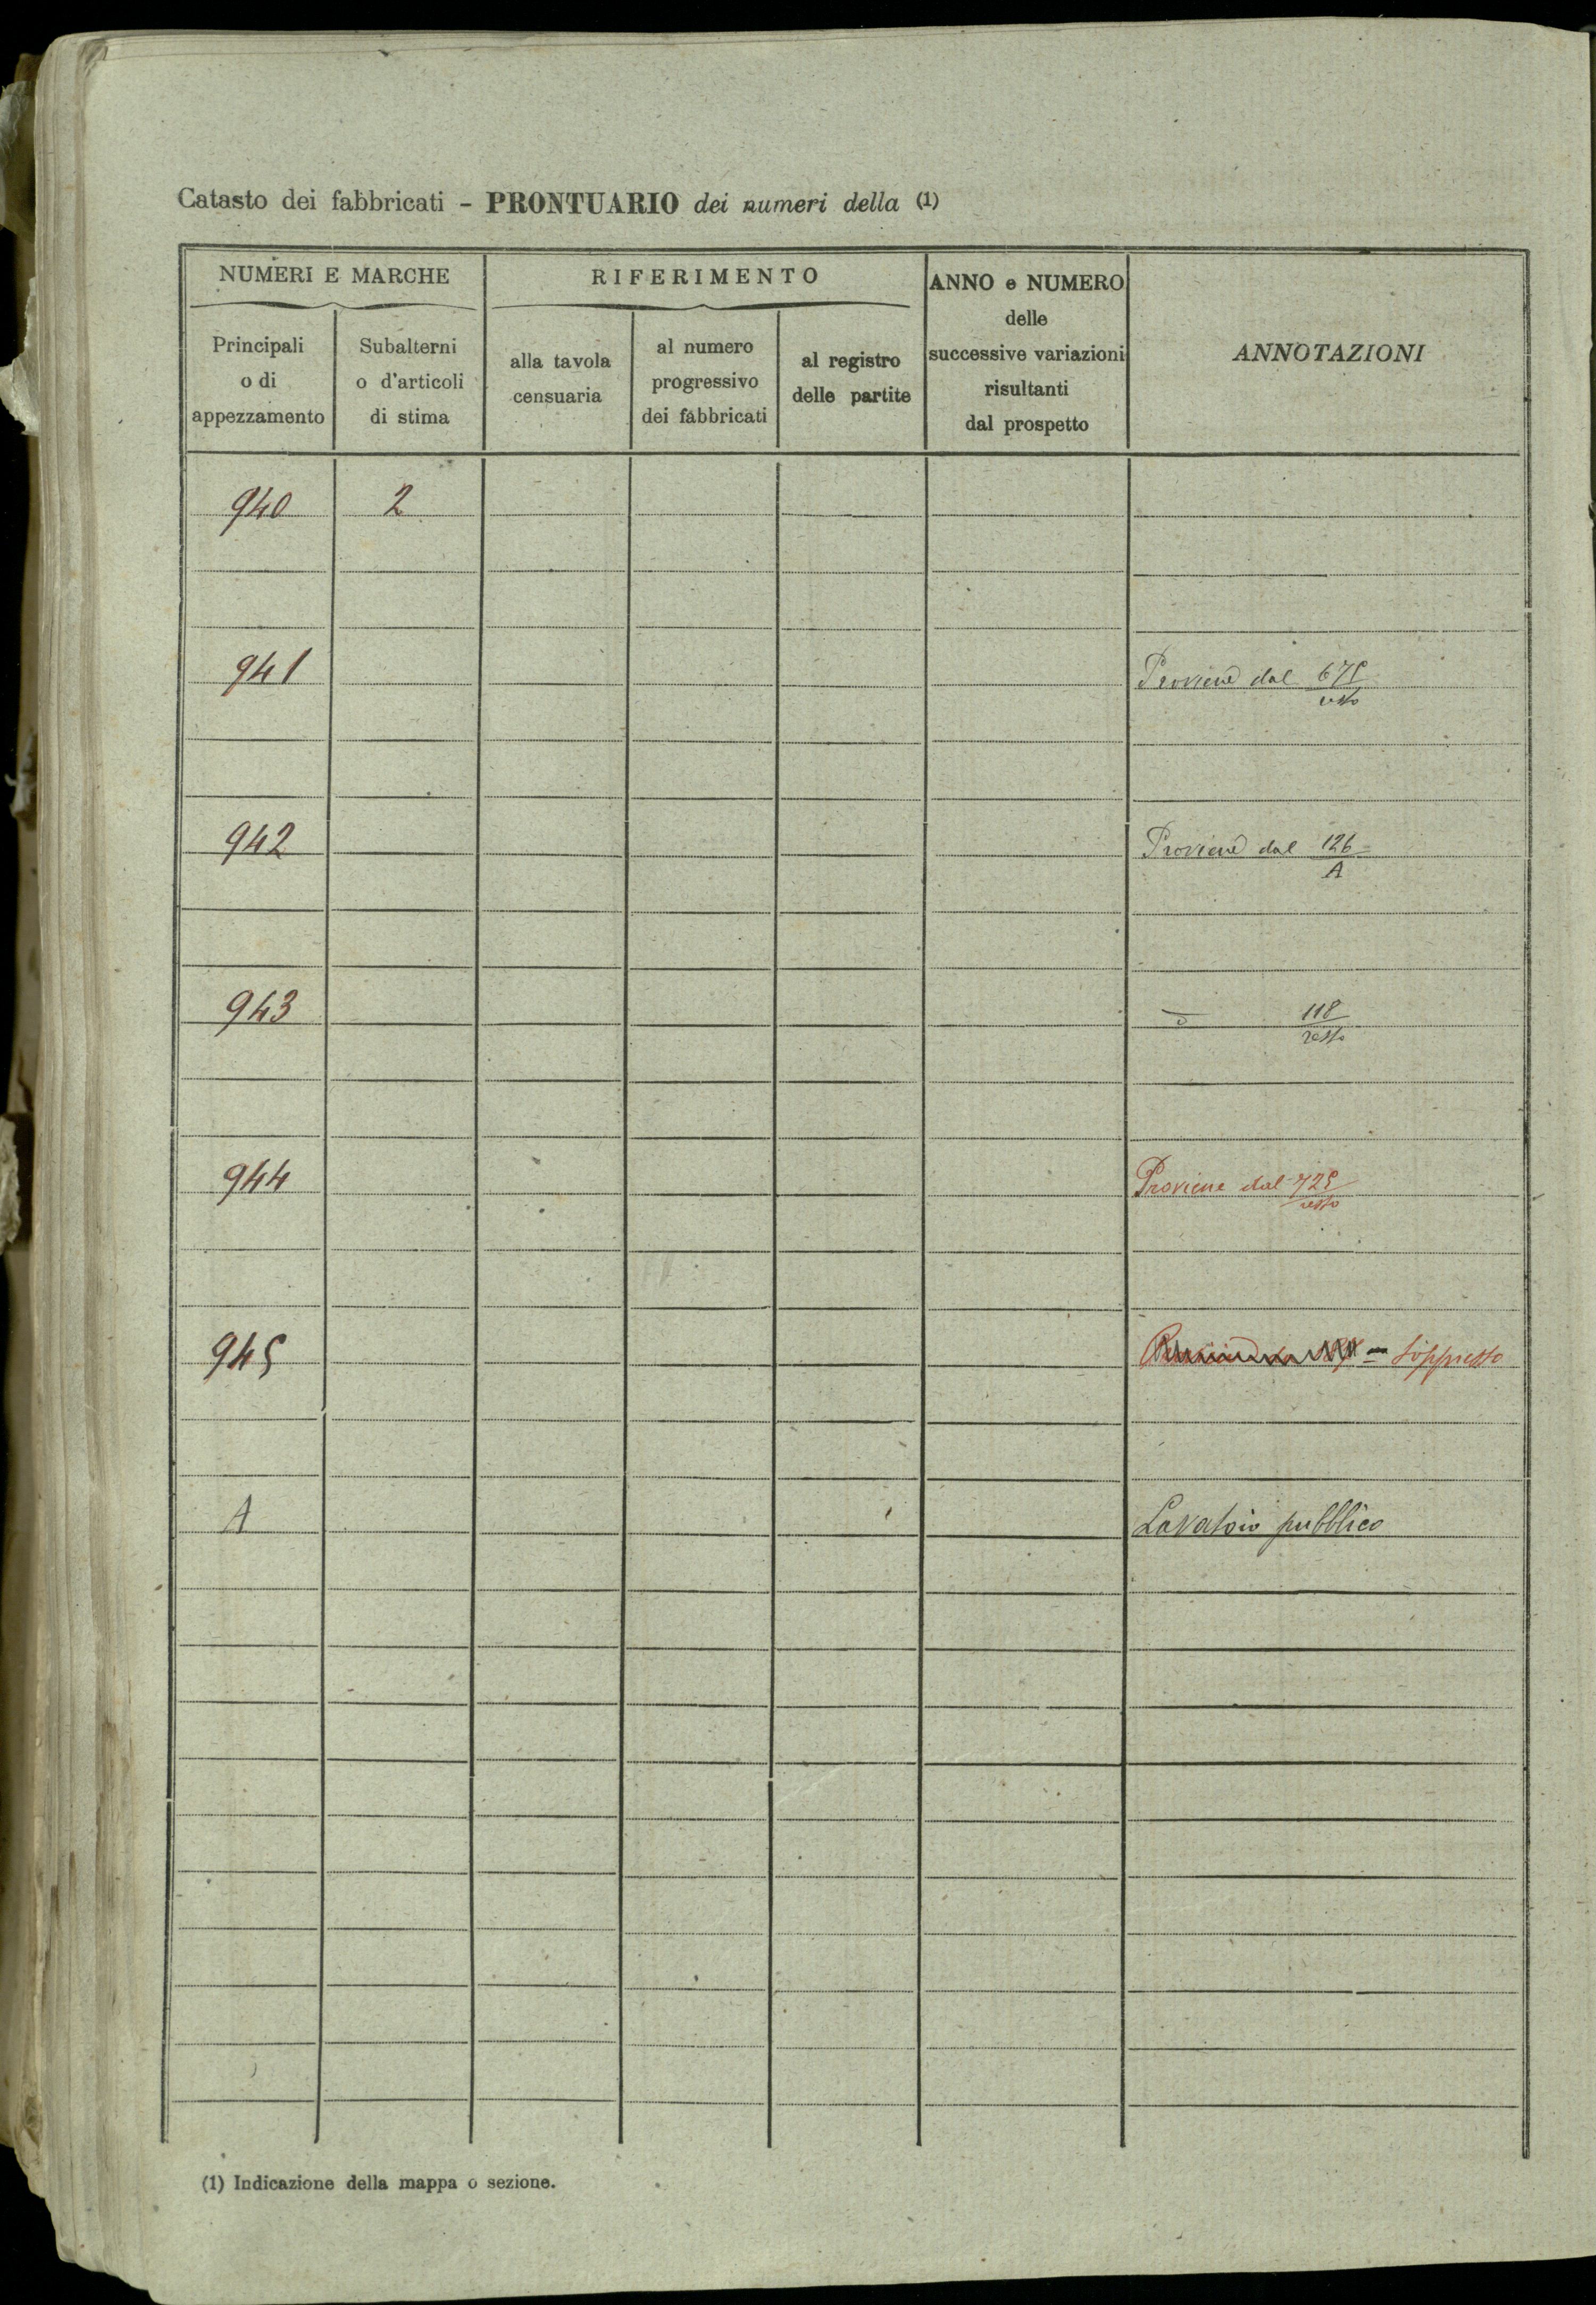 Catasto dei fabbricati - PRONTUARIO dei numeri della (1)
NUMERI E MARCHE
RIFERIMENTO
ANNO e NUMERO
delle
successive variazioni
risultanti
dal prospetto
ANNOTAZIONI
Principali
o di
appezzamento
Subalterni
o d'articoli
di stima
alla tavola
censuaria
al numero
progressivo
dei fabbricati
al registro
delle partite
940 2
941 Proviene dal 675
resto
942 Proviene dal 126
A
943 118
resto
944 Proviene dal 725
resto
945 = Soppresso
A Lavatoio pubblico
(1) Indicazione della mappa o sezione.